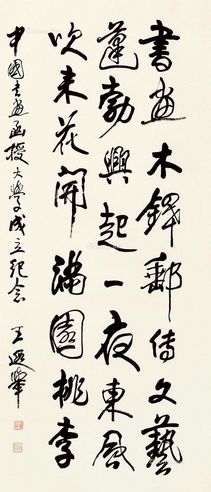 書畫木鐸郵傳文藝
蓬勃興起一夜東風
吹来花開滿園桃李
中國书畫函授大學成立紀念
王遐舉